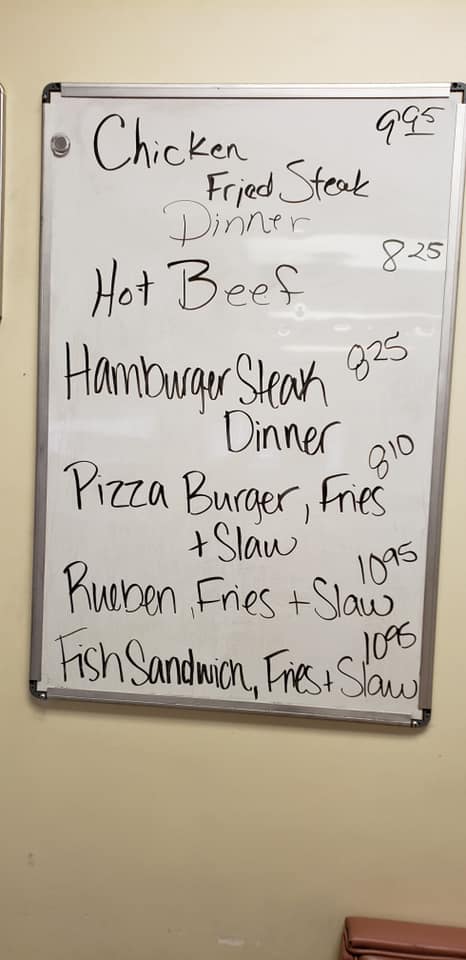 Chicken 9.95
Fried Steak
Dinner
Hot Beef 8 25
Hamburger Steak 825
Dinner
Pizza Burger, Fries 810
+ Slaw
Rueben, Fries + Slaw 1095
Fish Sandwich, Fries + Slaw 1095